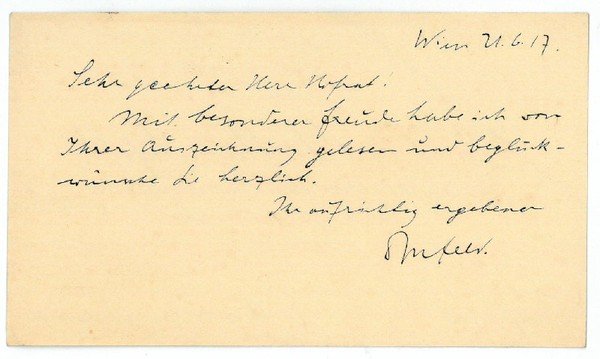 Wien 21.6.17.
Sehr geehrter Herr Hofrat!
Mit besonderer Freude habe ich von
Ihrer Auszeichnung gelesen und beglück-
wünsche Sie herzlich.
Ihr aufrichtig ergebener